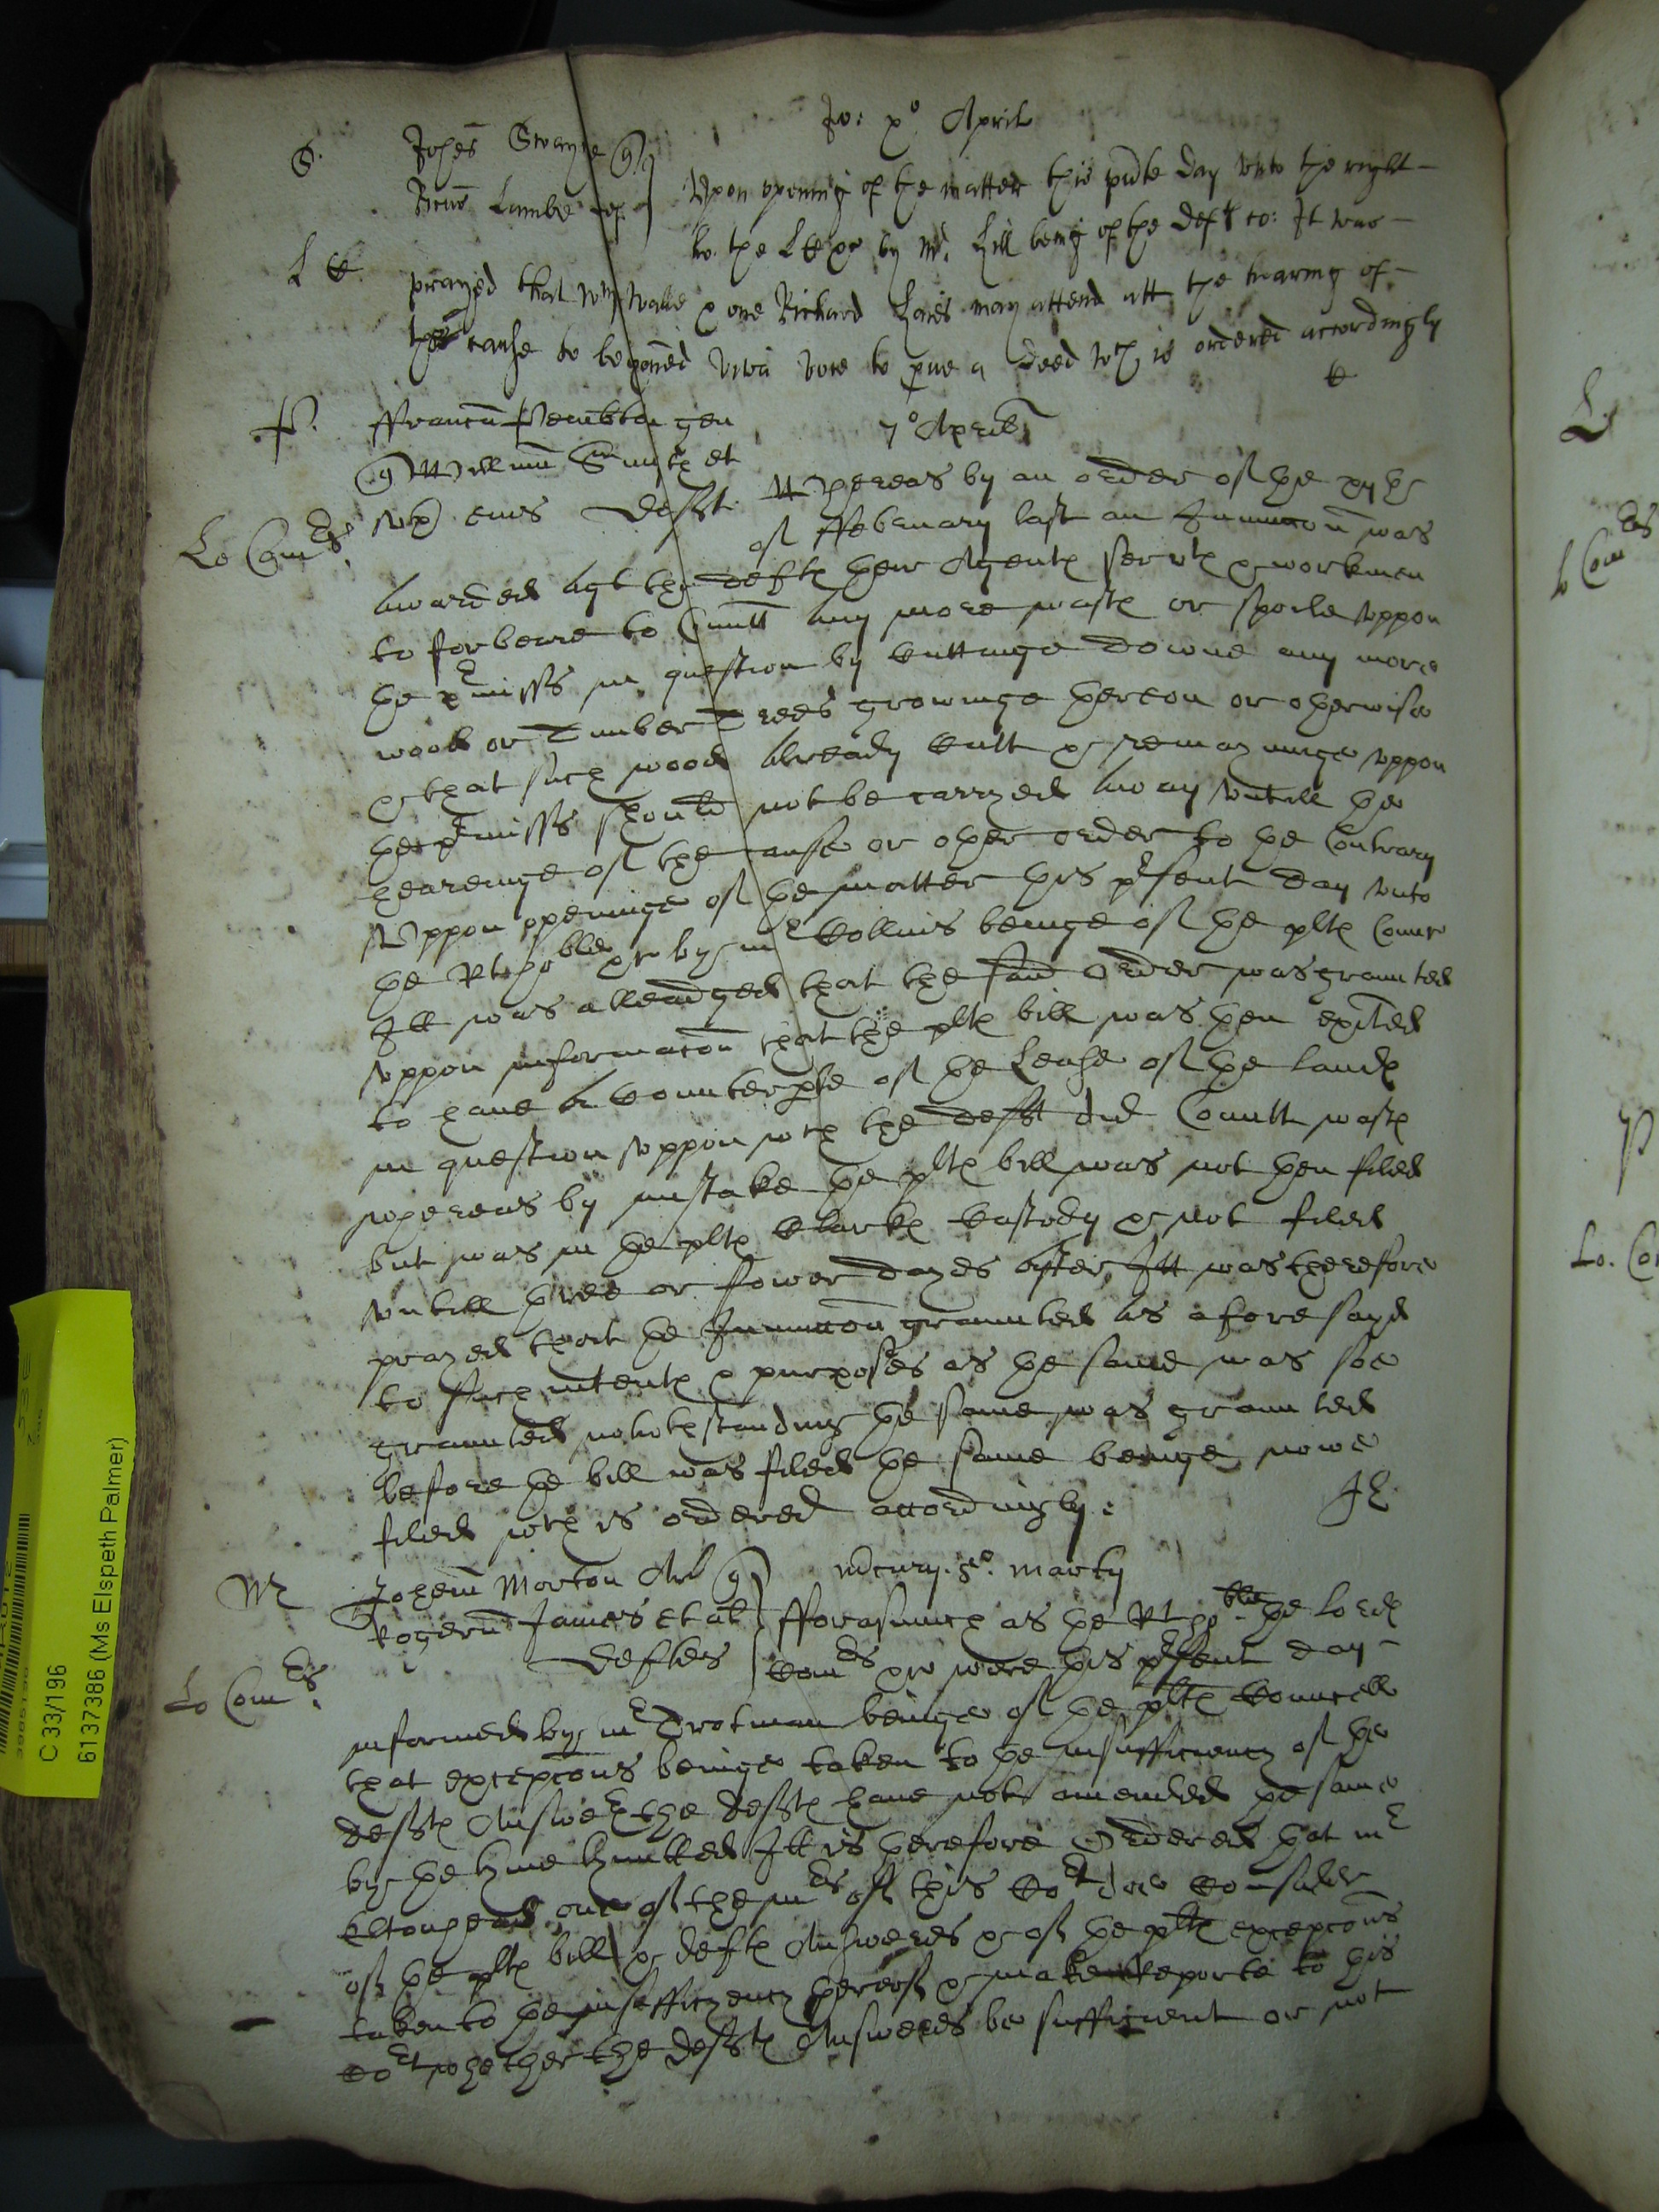 Jo: xo April
S. Johes Swayne
Ricus Lambe def
Upon opening of the matter this pnte day unto the right
L C. ho. the L C &c by Mr. Hill being of the deft co: It was
prayed that Wm Walle & one Richard may attend att the hearing of
the cause to be viva voce to prove a deed wch is ordered accordingly
P. ffrancus Pembton gen 7o Aprilis
Willmu Smith et
ux eius Deft. Whereas by an order of the
Lo Comrs. of ffebruary last an Iniunccon was
awarded agt the defts their Agents servts & workmen
to forbeare to Comitt any more wast or spoile uppon
the prmisses in question by cuttinge downe any more
wood or Timber Trees growinge thereon or otherwise
& that such wood already cutt & remayninge uppon
the prmisses should not be carryed away untill the
heareinge of the cause or other order to the Contrary
Uppon openinge of the matter this prsent day unto
the Rt hoble &c by mr Collins beinge of the plts Counc
Itt was alleadged that the said Order was graunted
uppon informacon that the plts bill was then exited
to have a Counterpte of the Lease of the lands
in question uppon wch the Defts did Comitt wast
whereas by mistake the plts bill was not then filed
but was in the plts Clarks Custody & not filed
untill three or fower dayes after, Itt was therefore
prayed that the Iniunccon graunted as aforesayd
to such intents & purposes as the same was soe
graunted notwthstanding the same was graunted
before the bill was filed the same beinge nowe
filed wch is ordered accordingly. JE
M Johem Morton Ar Mercury. 3o. Marty
Rogeru James et al fforasmuch as the Rt hoble the lords
Deftes Comrs &c were this prsent day
Lo Comrs.
informed by mr Trotman beinge of the plts Councell
that excepcons beinge taken to the insufficiency of the
defts Answer the defts have not amended the same
by the tyme lymitted Itt is therefore Ordered that mr
Estcourt one of the mrs of this Cort doe consider
of the plts bill & defts Answeres & of the plts excepcons
taken to the insufficyency thereof & make Reporte to this
Cort whether the defts Answeres be sufficient or not
C 33/196
6137386 (Ms Elspeth Palmer)